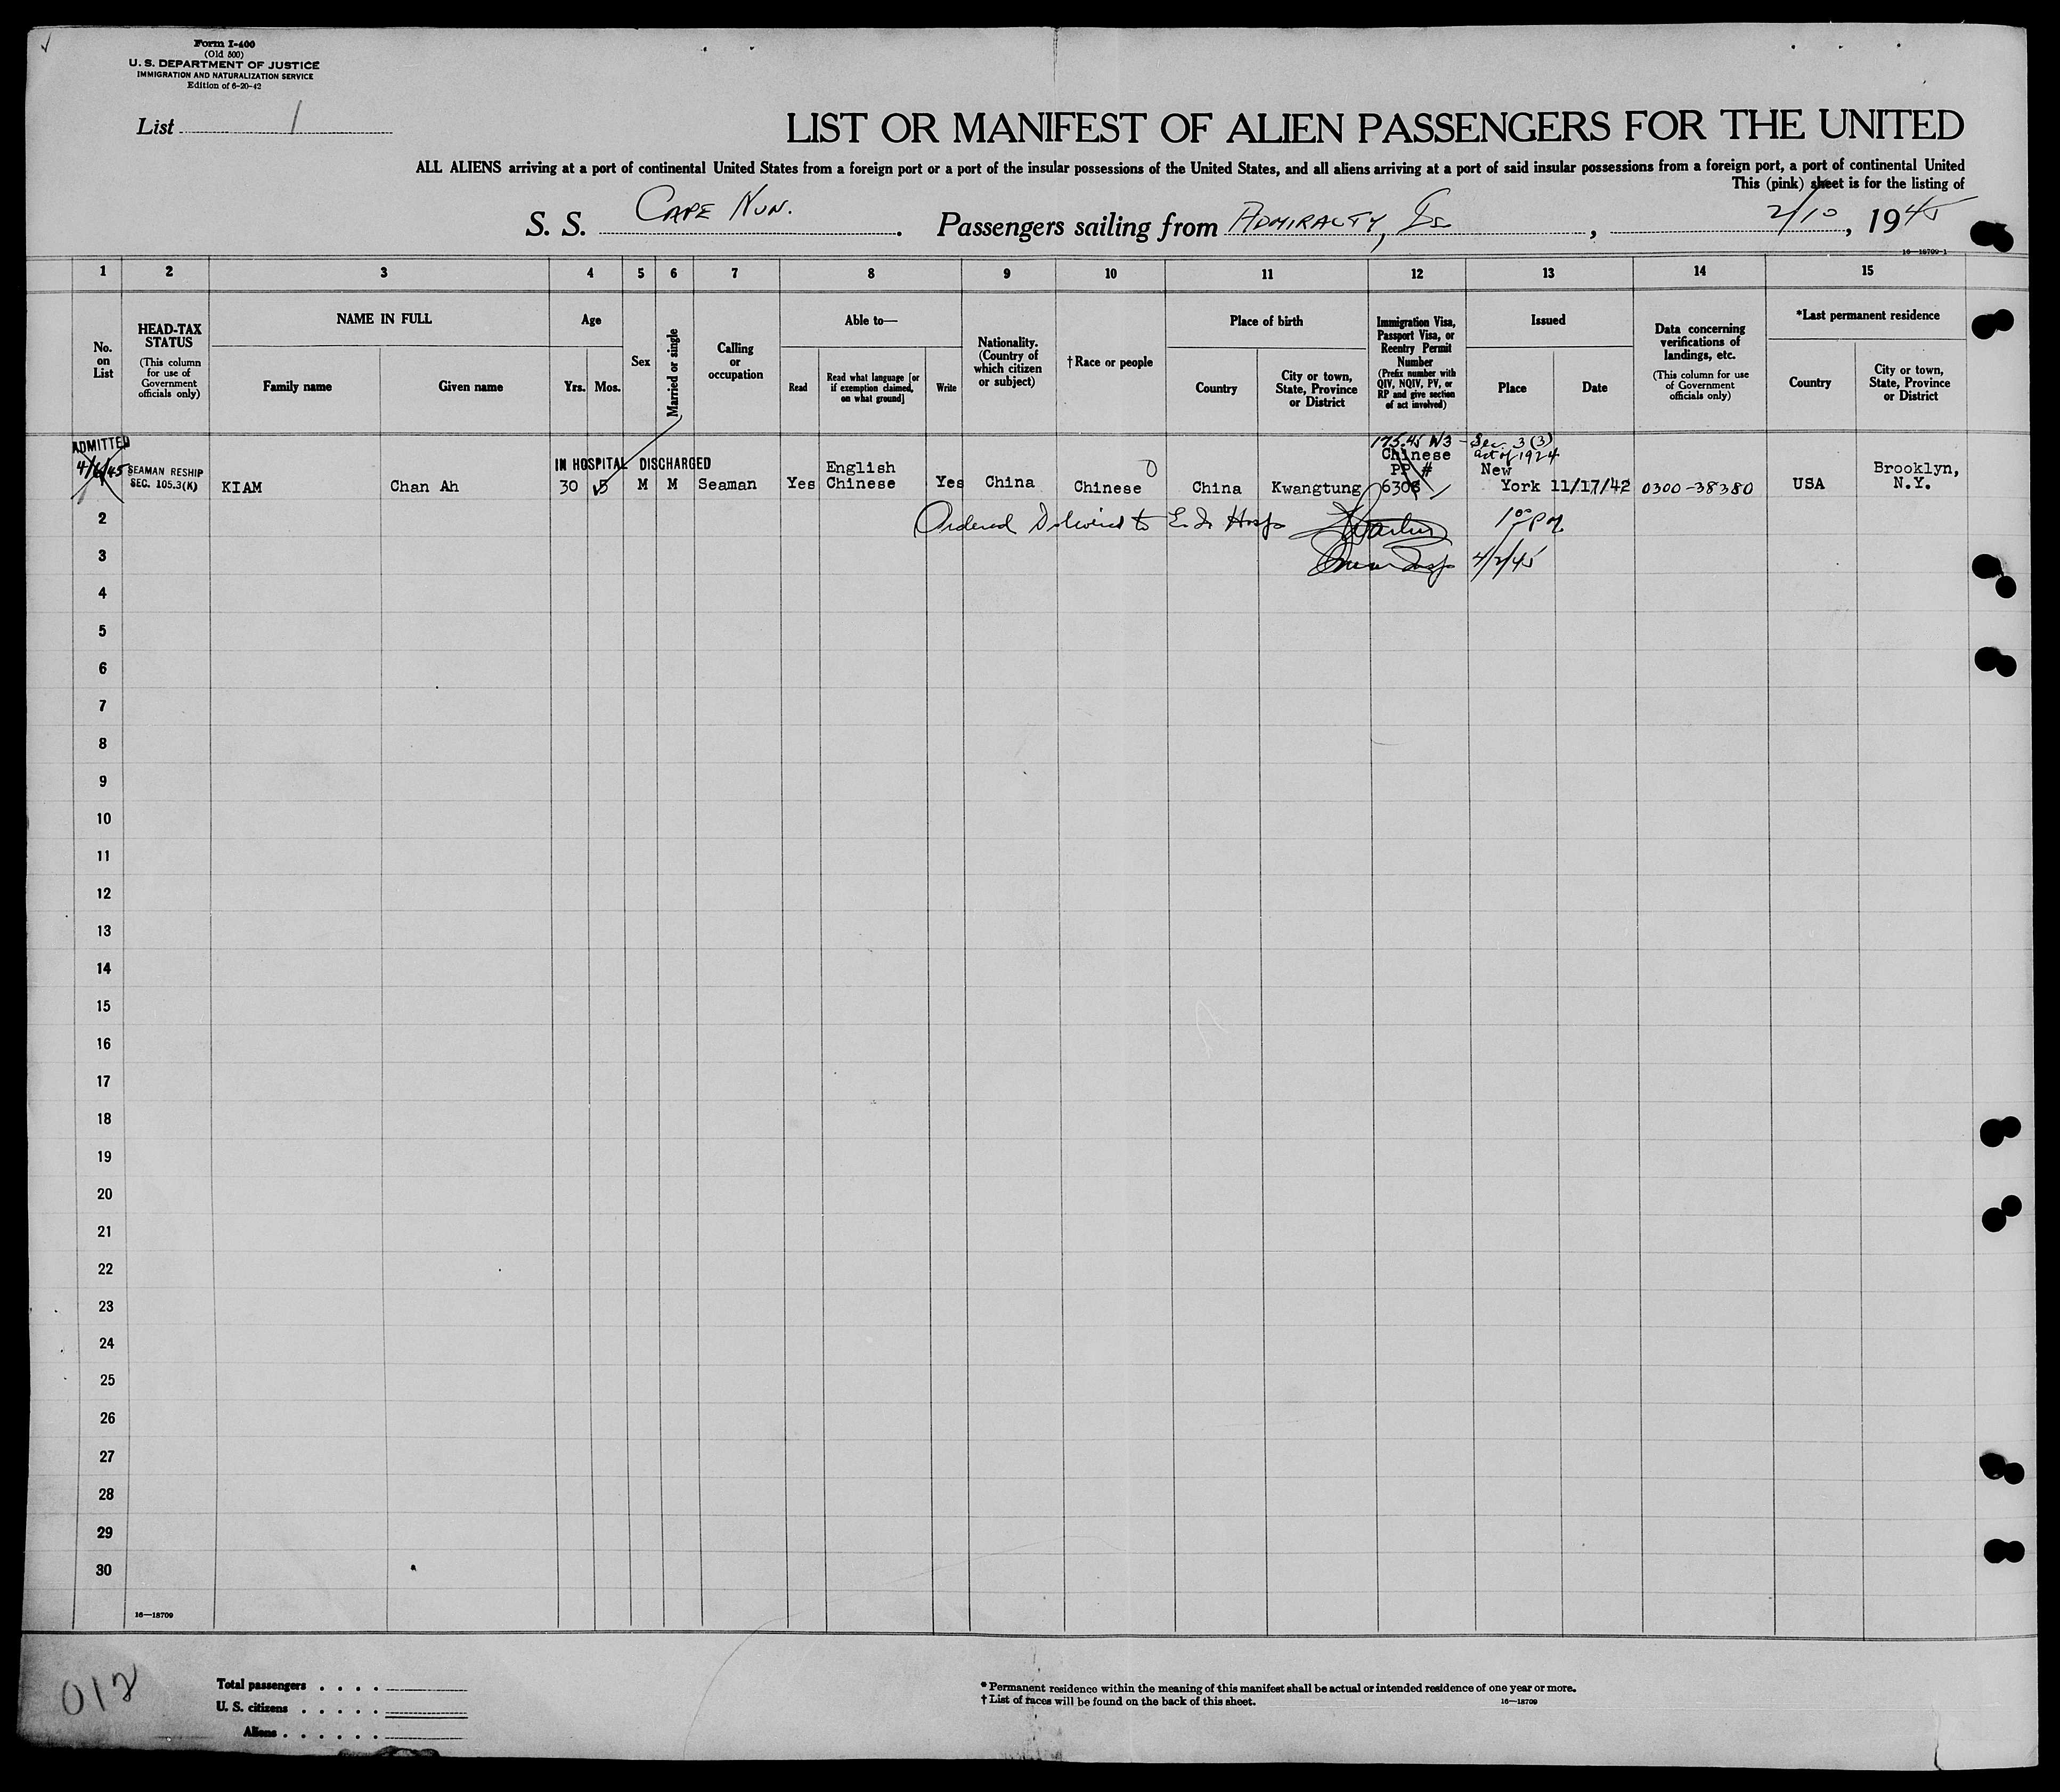 Form I-400
(Old 500)
U. S. DEPARTMENT OF JUSTICE
IMMIGRATION AND NATURALIZATION SERVICE
Edition of 6-20-42
List 1
LIST OR MANIFEST OF ALIEN PASSENGERS FOR THE UNITED
ALL ALIENS arriving at a port of continental United States from a foreign port or a port of the insular possessions of the United States, and all aliens arriving at a port of said insular possessions from a foreign port, a port of continental United
This (pink) sheet is for the listing of
S. S. CAPE NUN. Passengers sailing from ADMIRALTY, Is , 2/10 , 1945
16—18709-1
1 2 3 4 5 6 7 8 9 10 11 12 13 14 15
No. on List
HEAD-TAX STATUS
(This column for use of Government officials only)
NAME IN FULL
Family name
Given name
Age
Yrs. Mos.
Sex
Married or single
Calling or occupation
Able to—
Read
Read what language [or if exemption claimed, on what ground]
Write
Nationality. (Country of which citizen or subject)
† Race or people
Place of birth
Country
City or town, State, Province or District
Immigration Visa, Passport Visa, or Reentry Permit Number
(Prefix number with QIV, NQIV, PV, or RP and give section of act involved)
Issued
Place
Date
Data concerning verifications of landings, etc.
(This column for use of Government officials only)
*Last permanent residence
Country
City or town, State, Province or District
ADMITTED
4/6/45
SEAMAN RESHIP
SEC. 105.3(K)
IN HOSPITAL DISCHARGED
175.45 W3 - Sec. 3(3)
act of 1924
KIAM Chan Ah 30 5 M M Seaman Yes English Chinese Yes China Chinese China Kwangtung Chinese PP # 6308 New York 11/17/42 0300-38380 USA Brooklyn, N.Y.
2 Ordered Delivered to E. I. Hosp 1 00 PM
3 4/2/45
4
5
6
7
8
9
10
11
12
13
14
15
16
17
18
19
20
21
22
23
24
25
26
27
28
29
30
16—18709
012
Total passengers . . . .
U. S. citizens . . . . .
Aliens . . . . . .
* Permanent residence within the meaning of this manifest shall be actual or intended residence of one year or more.
† List of races will be found on the back of this sheet. 16—18709